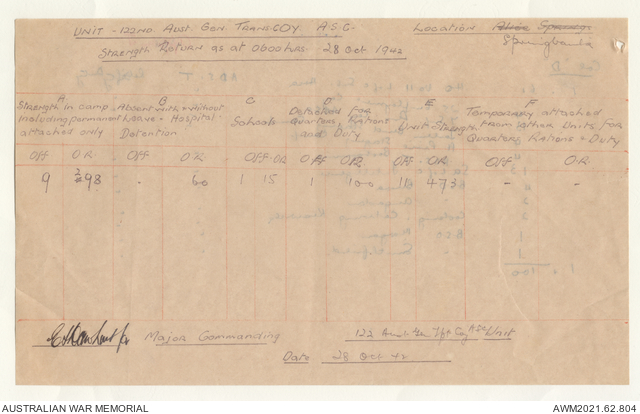 UNIT - 122ND. Aust. Gen. Trans. Coy. A.S.C. Location Alice Springs
Springbank
Strength Return as at 0600 hrs. 28 Oct 1942
A B C D E F
Strength In camp Absent with & without Schools Detached For Unit Strength Temporary attached
Including permanent Leave - Hospital Quarters, Rations From other Units, for
attached only Detention and Duty Quarters, Rations & Duty
Off O.R. Off O.R. Off O.R Off O.R. Off O.R. Off O.R.
9 298 - 60 1 15 1 100 11 473 - -
Major Commanding 122 Aust Gen Tpt Coy ASC Unit
Date 28 Oct 42
AUSTRALIAN WAR MEMORIAL AWM2021.62.804